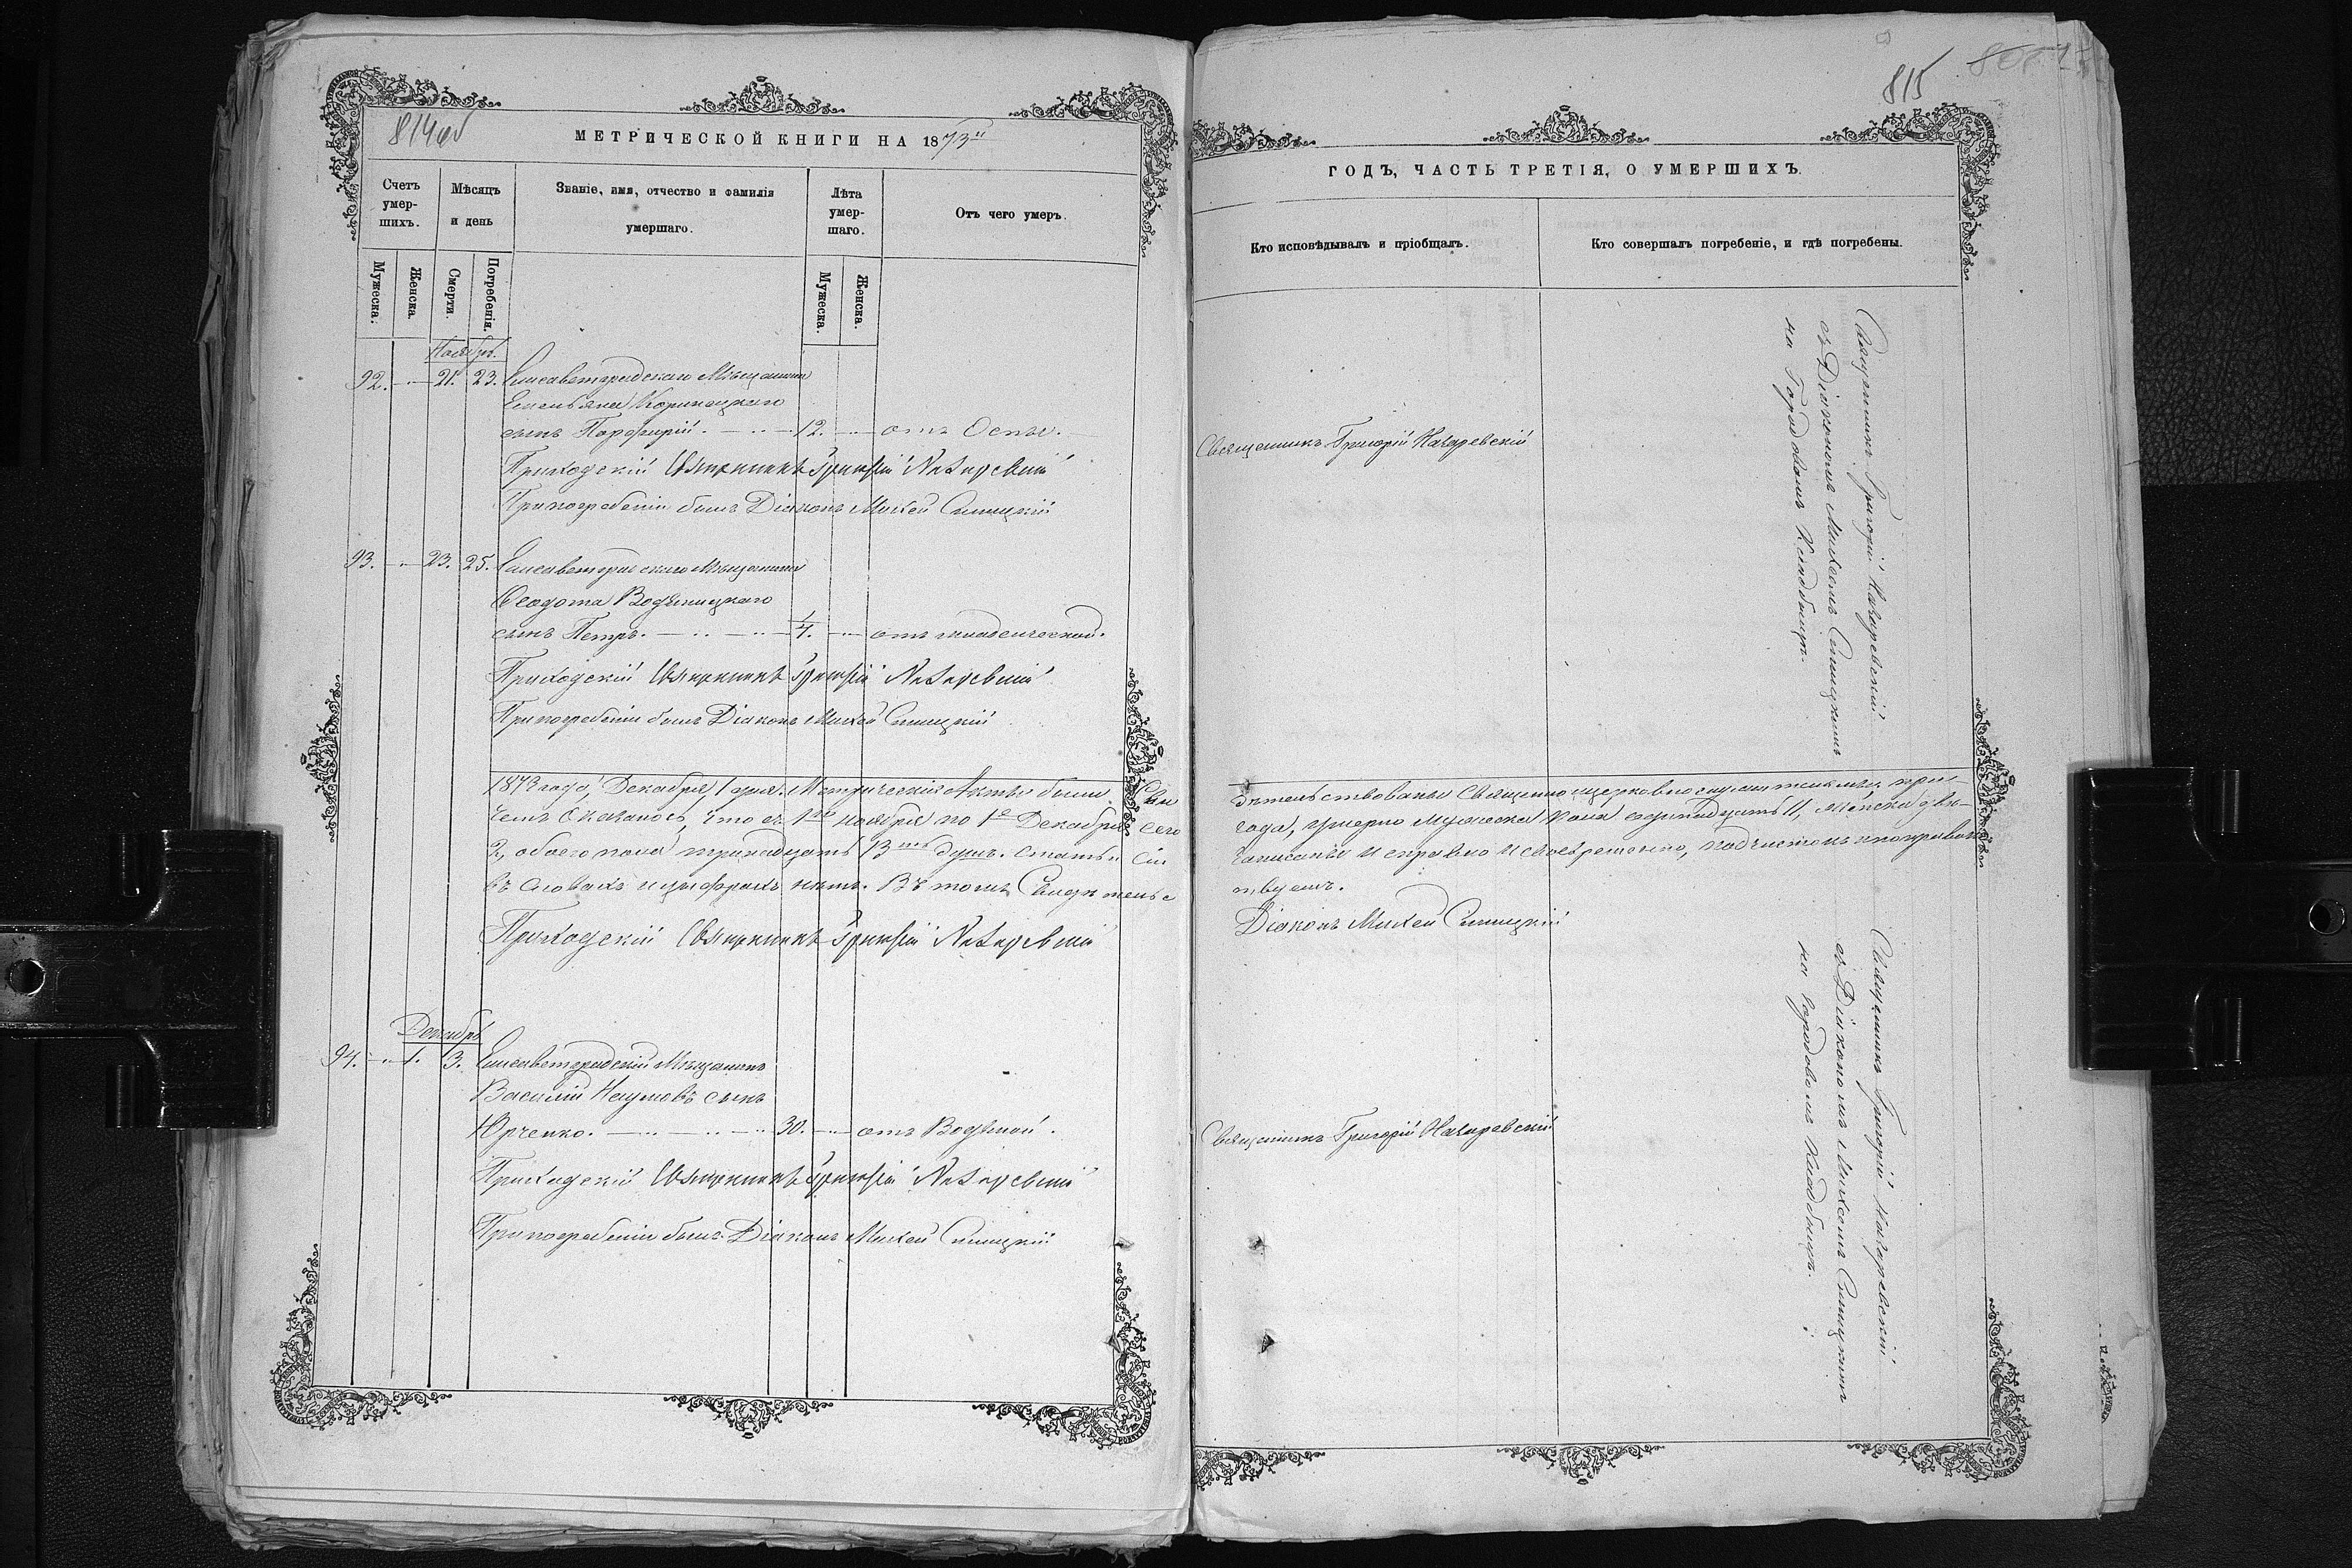 814об
МЕТРИЧЕСКОЙ КНИГИ НА 1873й
Счетъ умер-шихъ.
Мѣсяцъ и день
Званіе, имя, отчество и фамилія умершаго.
Лѣта умер-шаго.
Отъ чего умеръ.
Мужеска.
Женска.
Смерти.
Погребенія.
Мужеска.
Женска.
Ноябрь.
92. 21. 23. Елисаветградскаго Мѣщанина
Емельяна
сынъ Порфирій. 12. отъ Оспы.
Приходскій Священникъ Григорій Назаревскій
При погребеніи былъ Діаконъ Михей Синицкій
93. 23. 25. Елисаветградскаго Мѣщанина
Ѳеодота Водяницкаго
сынъ Петръ. 1/4. отъ младенческой.
Приходскій Священникъ Григорій Назаревскій
При погребеніи былъ Діаконъ Михей Синицкій
1873 года, Декабря, 1 дня. Метрическіе Акты были Сви
чемъ Оказалось, что съ 1го ноября по 1е Декабря сего
2, обоего пола тринадцать 13ть душъ. Статьи Сіи
въ словахъ и цифрахъ нѣтъ. Въ томъ Свидѣтельс
Приходскій Священникъ Григорій Назаревскій
Декабрь
94. 1. 3. Елисаветградскій Мѣщанинъ
Василій Наумовъ сынъ
Юрченко. 30. отъ Водяной.
Приходскій Священникъ Григорій Назаревскій
При погребеніи былъ Діаконъ Михей Синицкій
815
ГОДЪ, ЧАСТЬ ТРЕТІЯ, О УМЕРШИХЪ.
Кто исповѣдывалъ и пріобщалъ.
Кто совершалъ погребеніе, и гдѣ погребены.
Священникъ Григорій Назаревскій
Священникъ Григорій Назаревскій
съ Діакономъ Михеемъ Синицкимъ
на Городовомъ Кладбищѣ.
дѣтельствованы Священно церковно служителями, при
года, умерло мужеска пола одинадцать 11, женска два
записаны исправно и своевременно, подчистокъ и поправокъ
ствуемъ.
Діаконъ Михей Синицкій
Священникъ Григорій Назаревскій
Священникъ Григорій Назаревскій
съ Діакономъ Михеемъ Синицкимъ
на городовомъ Кладбищѣ.